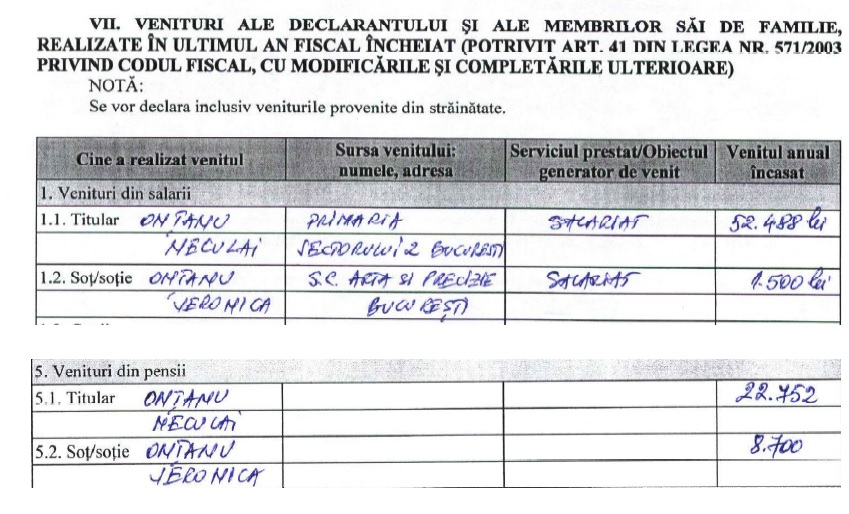 VII. VENITURI ALE DECLARANTULUI ŞI ALE MEMBRILOR SĂI DE FAMILIE,
REALIZATE ÎN ULTIMUL AN FISCAL ÎNCHEIAT (POTRIVIT ART. 41 DIN LEGEA NR. 571/2003
PRIVIND CODUL FISCAL, CU MODIFICĂRILE ŞI COMPLETĂRILE ULTERIOARE)
NOTĂ:
Se vor declara inclusiv veniturile provenite din străinătate.
Cine a realizat venitul Sursa venitului: numele, adresa Serviciul prestat/Obiectul generator de venit Venitul anual încasat
1. Venituri din salarii
1.1. Titular ONŢANU PRIMARIA SALARIAT 52.488 lei
NECULAI SECTORULUI 2 BUCUREŞTI
1.2. Soţ/soţie ONŢANU S.C. ARTA SI PRECIZIE SALARIAT 1.500 lei
VERONICA BUCUREŞTI
5. Venituri din pensii
5.1. Titular ONŢANU 22.752
NECULAI
5.2. Soţ/soţie ONŢANU 8.700
VERONICA